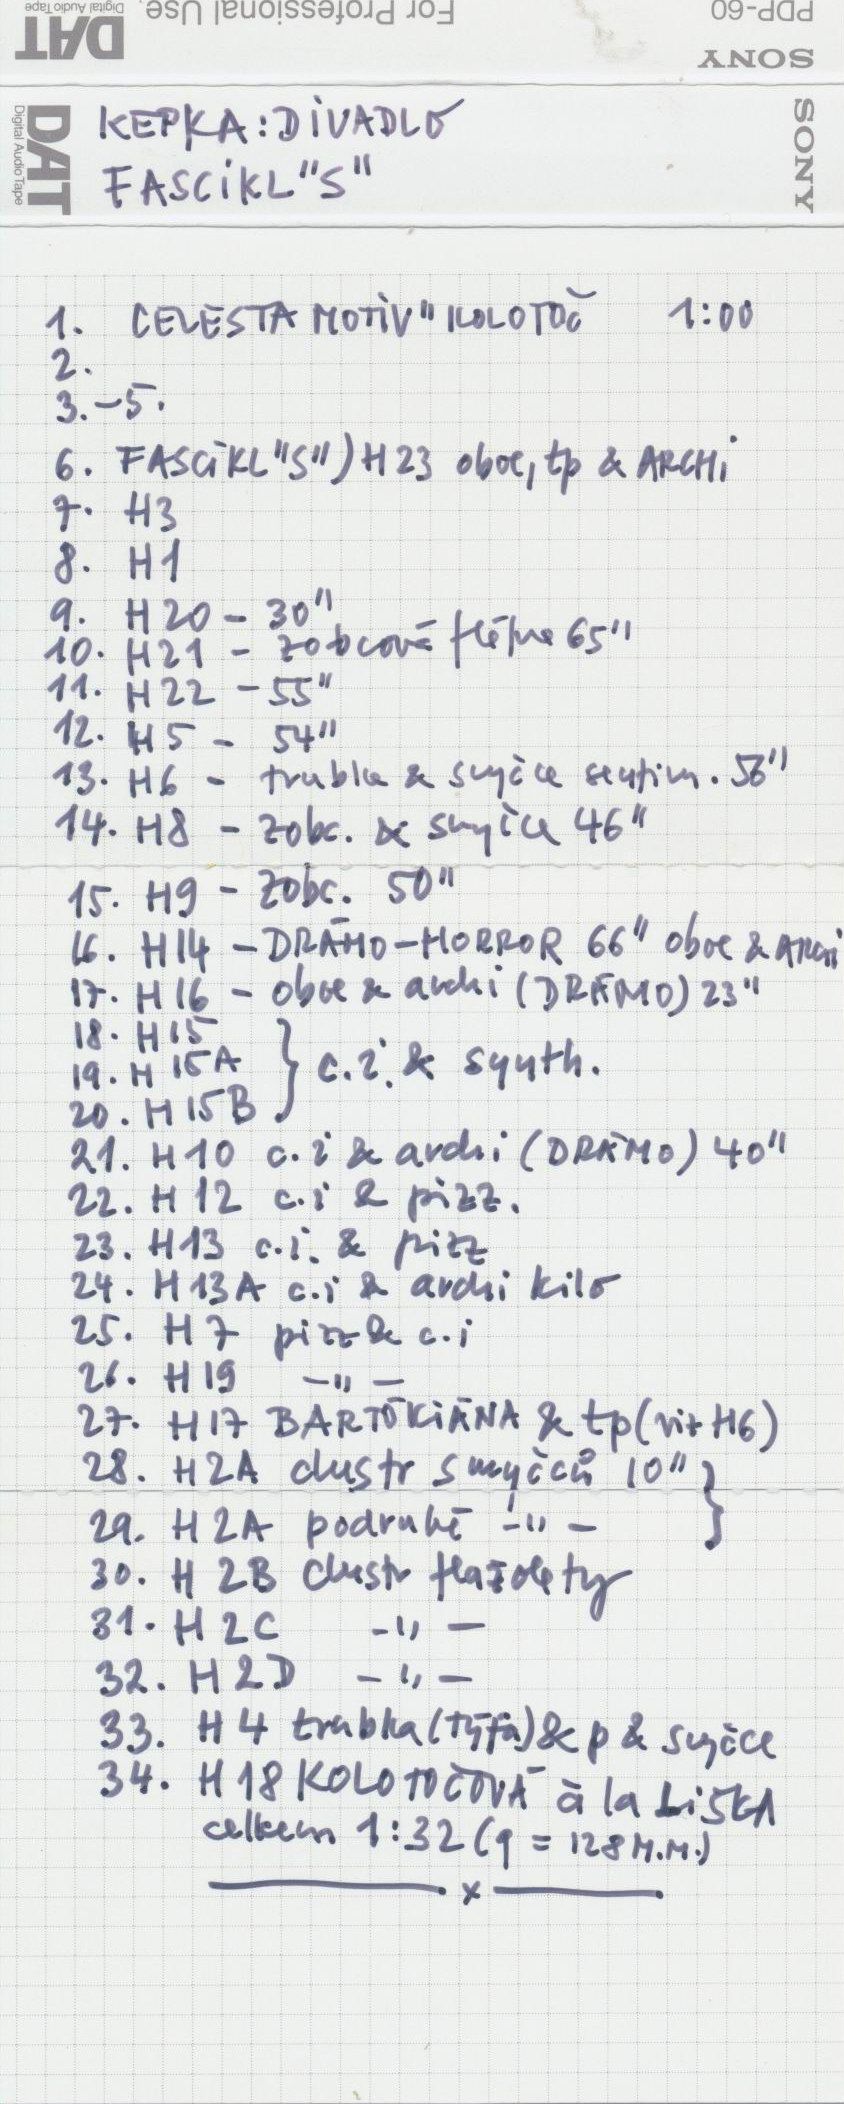 For Professional Use.
PDP-60
DAT
Digital Audio Tape
SONY
DAT
Digital Audio Tape
SONY
KEPKA: DIVADLO
FASCIKL "S"
1. CELESTA MOTIV" KOLOTOČ 1:00
2.
3.-5.
6. FASCIKL "S") H23 oboe, tp & ARCHI
7. H3
8. H1
9. H20 - 30"
10. H21 - zobcová flétna 65"
11. H22 - 55"
12. H5 - 54"
13. H6 - trubka & smyčce sentim. 56"
14. H8 - zobc. & smyčce 46"
15. H9 - zobc. 50"
16. H14 - DRÁMO-HORROR 66" oboe & ARCHI
17. H16 - oboe & archi (DRÁMO) 23"
18. H15
19. H15A } c.i. & synth.
20. H15B
21. H10 c.i & archi (DRÁMO) 40"
22. H12 c.i & pizz.
23. H13 c.i. & pizz
24. H13A c.i & archi kilo
25. H7 pizz & c.i
26. H19 -"-
27. H17 BARTÓKIÁNA & tp (viz H6)
28. H2A clustr smyčců 10" }
29. H2A podruhé -"-
30. H2B clustr flažolety
31. H2C -"-
32. H2D -"-
33. H4 trubka (Týfa) & p & smyčce
34. H18 KOLOTOČOVÁ à la LIŠKA
celkem 1:32 (q = 128 M.M.)
x